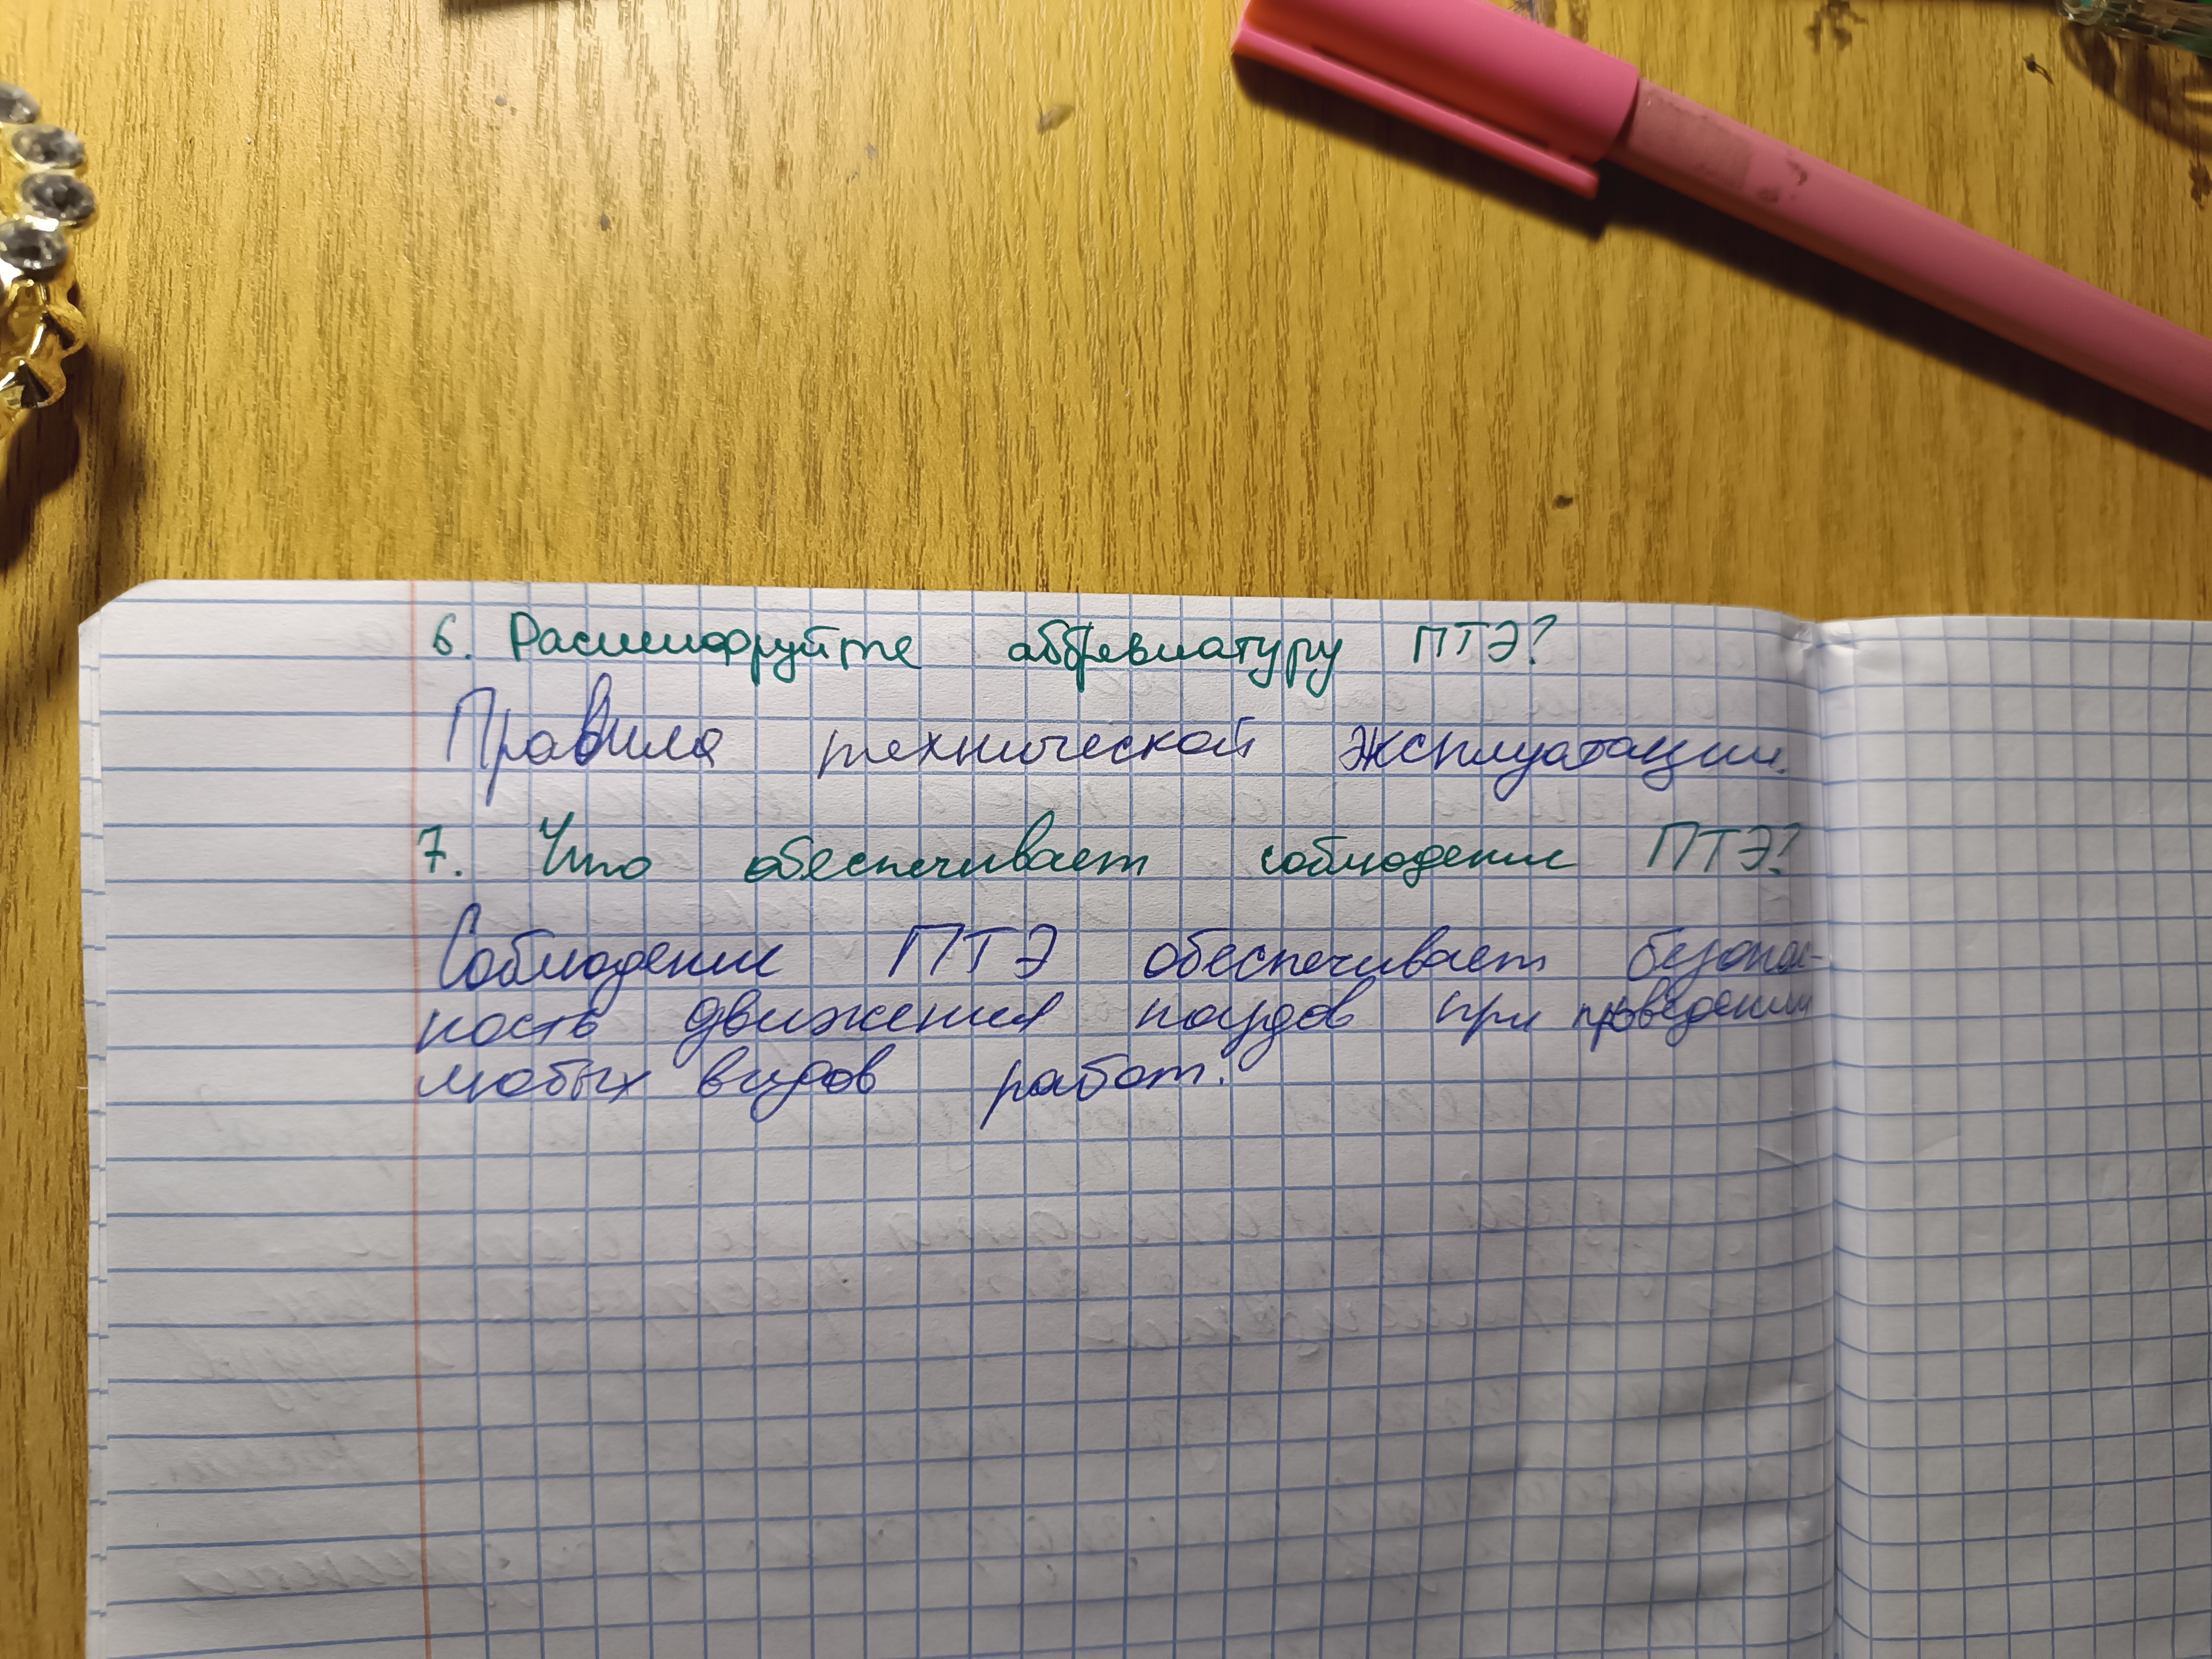 6. Расшифруйте аббревиатуру ПТЭ?
Правила технической эксплуатации.
7. Что обеспечивает соблюдение ПТЭ?
Соблюдение ПТЭ обеспечивает безопас-
ность движения поездов при проведении
любых видов работ.